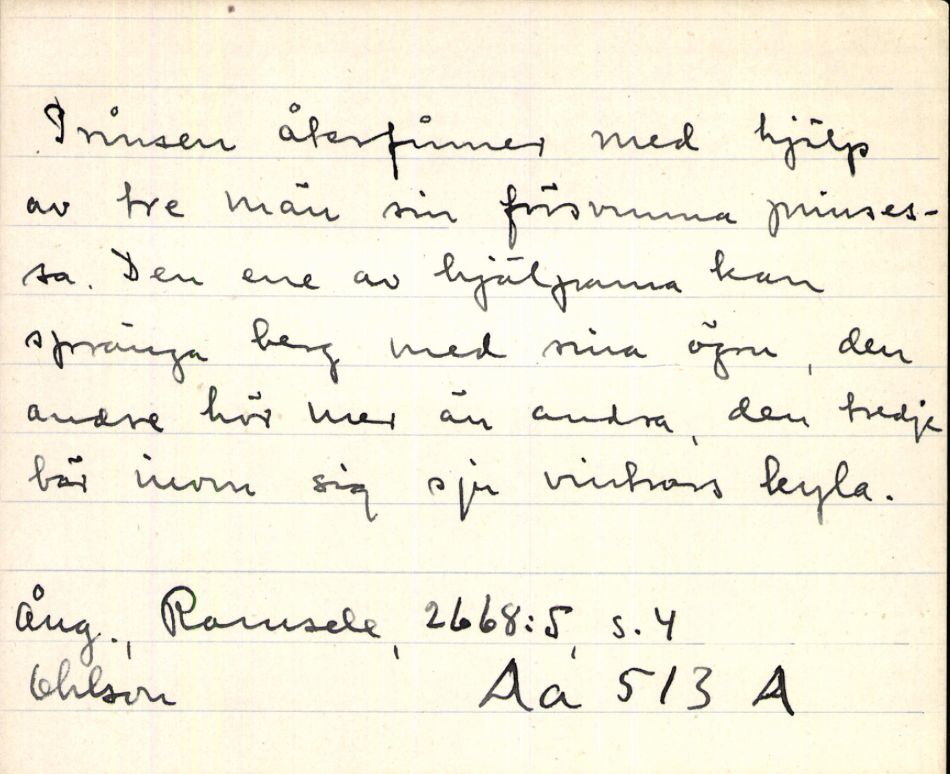 Prinsen återfinner med hjälp
av tre män sin försvunna prinses-
sa. Den ene av hjälparna kan
spränga berg med sina ögon, den
andre hör mer än andra, den tredje
bär inom sig sju vintrars kyla.
Ång., Ramsele, 2668:5, s. 4
Ohlson Aa 513 A